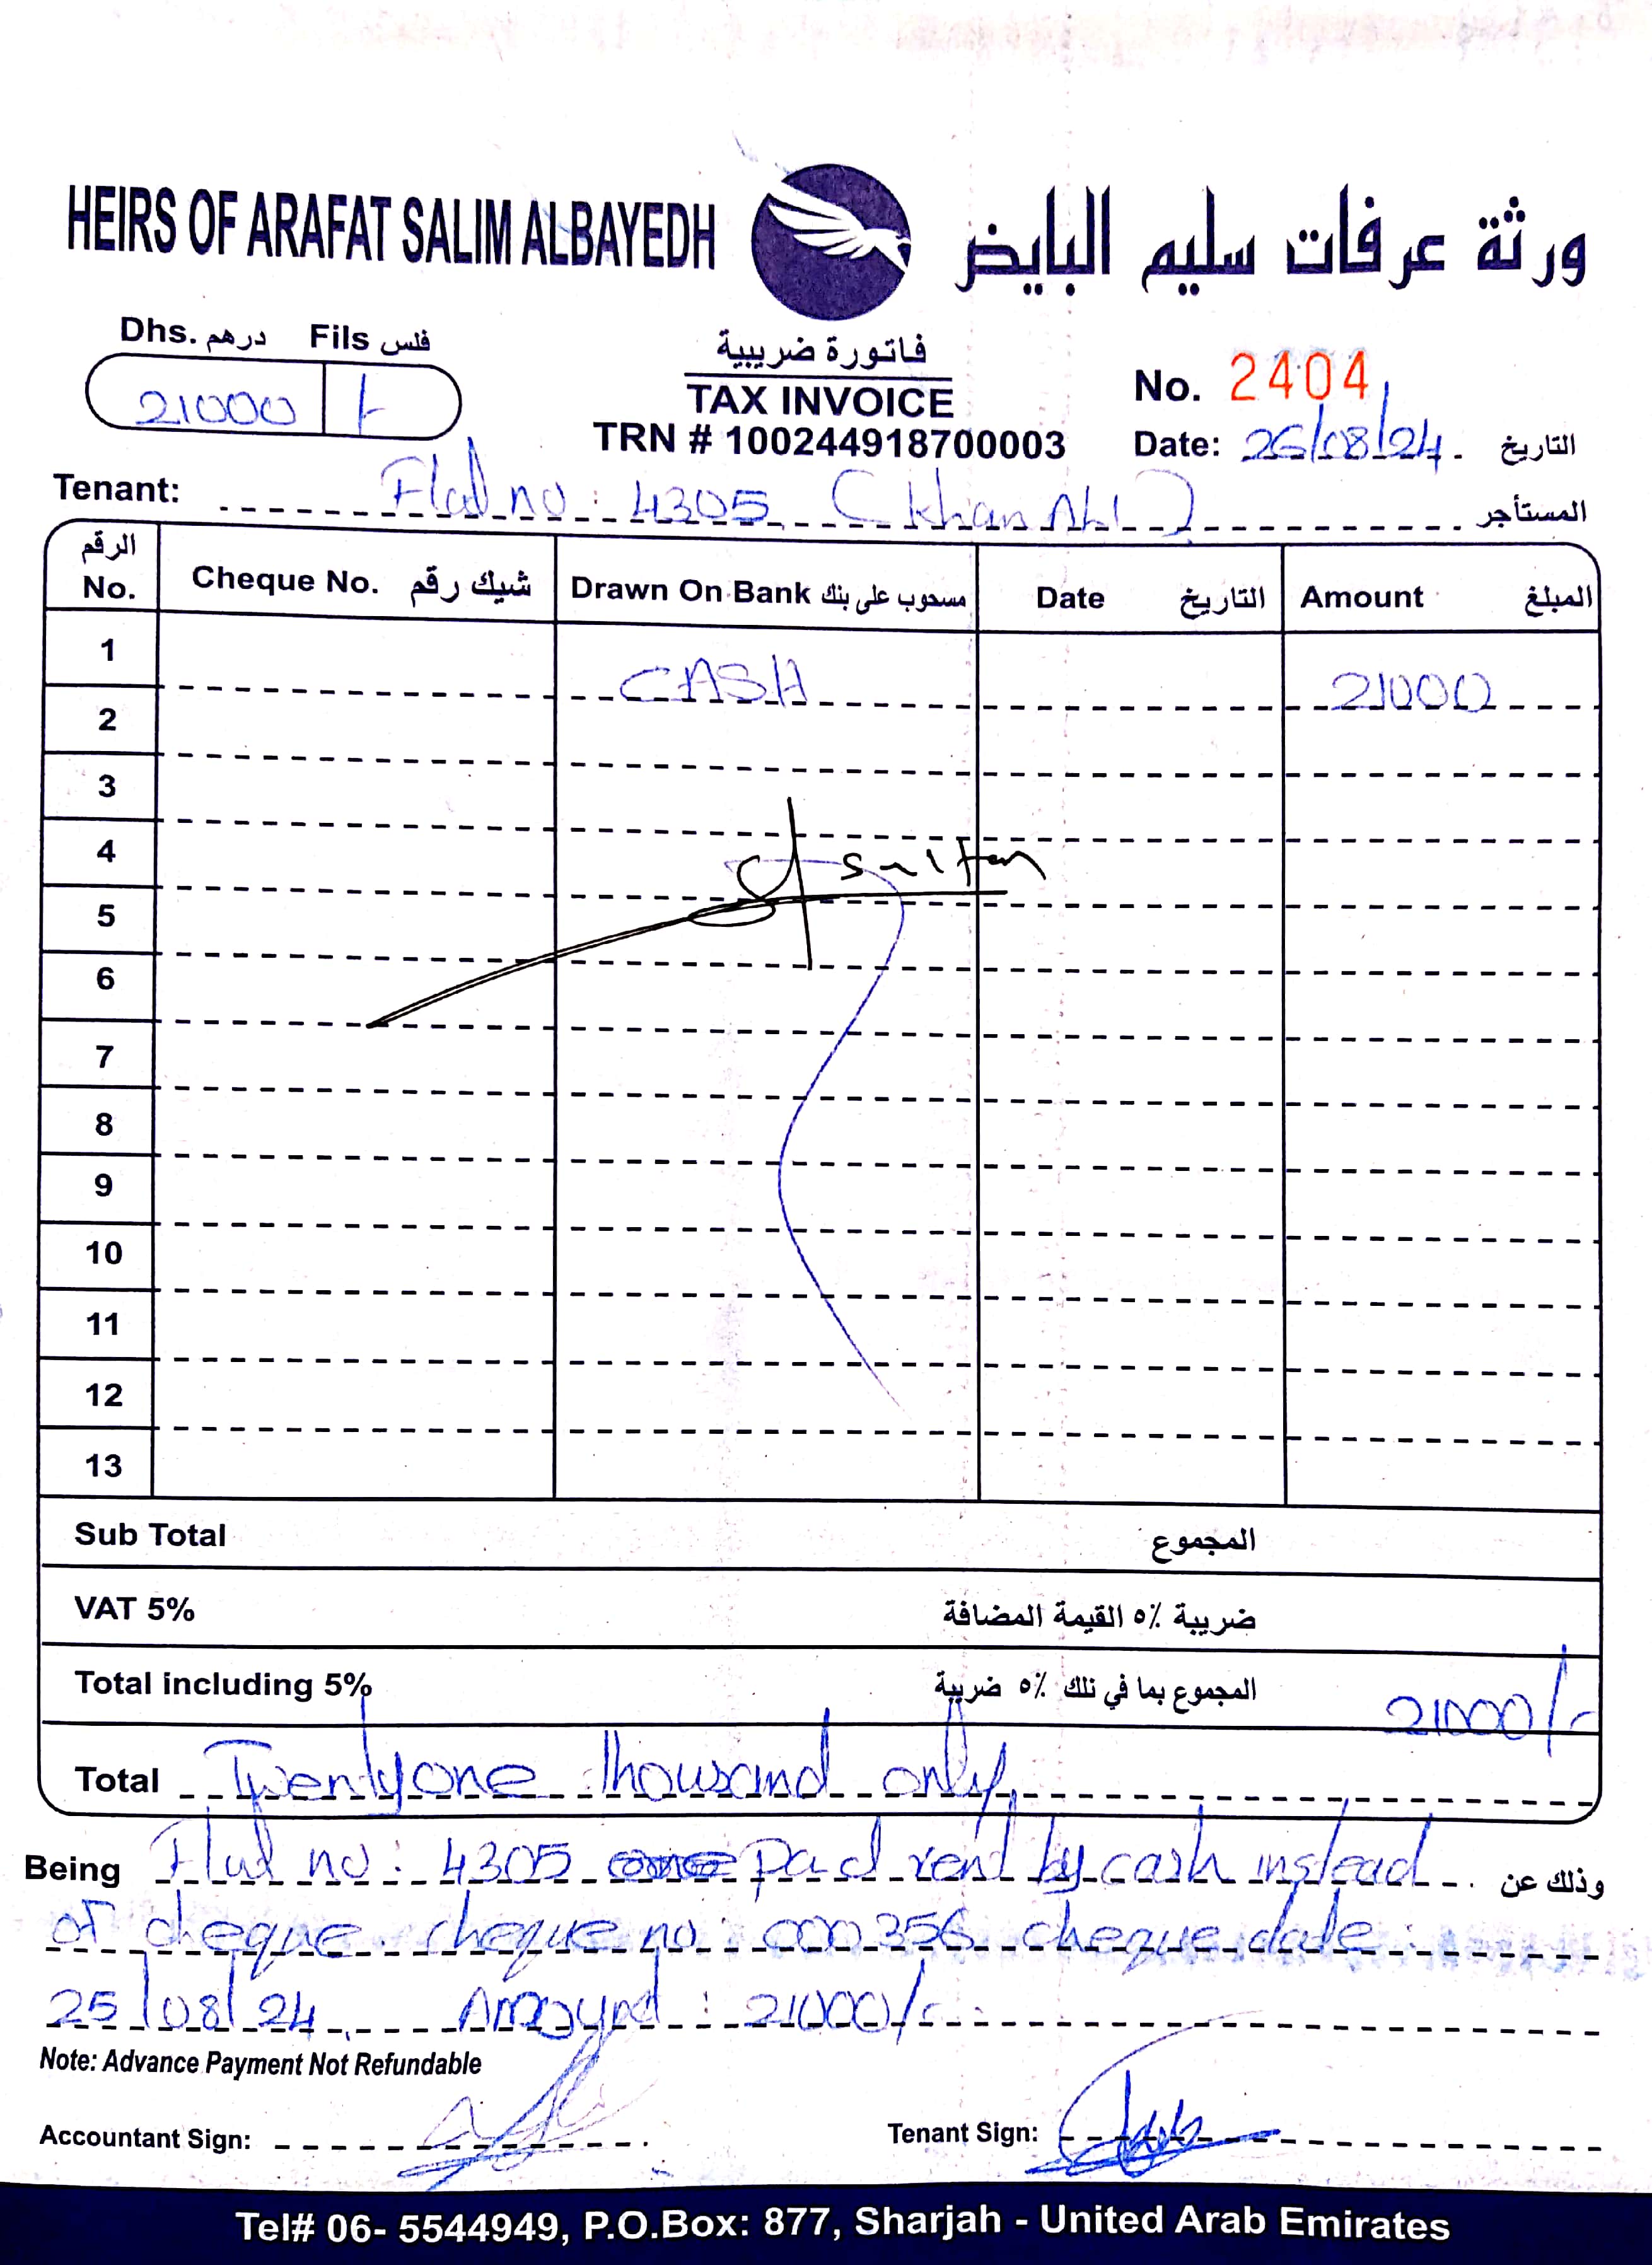 HEIRS OF ARAFAT SALIM ALBAYEDH
ورثة عرفات سليم البايض
Dhs. درهم Fils فلس
21000 /-
فاتورة ضريبية
TAX INVOICE
TRN # 100244918700003
No. 2404
Date: 26/08/24. التاريخ
Tenant: Flat no: 4305 (Khan Ali) المستأجر
الرقم No. Cheque No. شيك رقم Drawn On Bank مسحوب على بنك Date التاريخ Amount المبلغ
1 CASH 21000
2
3
4
sultan
5
6
7
8
9
10
11
12
13
Sub Total المجموع
VAT 5% ضريبة ٥٪ القيمة المضافة
Total including 5% المجموع بما في ذلك ٥٪ ضريبة 21000/-
Total Twentyone thousand only.
Being Flat no: 4305 paid rent by cash instead وذلك عن
of cheque. cheque no: 000356 cheque date:
25/08/24. Amount: 21000/-
Note: Advance Payment Not Refundable
Accountant Sign: Tenant Sign:
Tel# 06- 5544949, P.O.Box: 877, Sharjah - United Arab Emirates